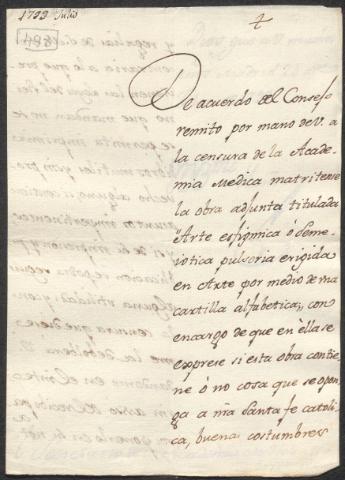 1793 Julio
(884)
4
De acuerdo del Consejo
remito por mano de V. a
la censura de la Acade-
mia Medica matritense
la obra adjunta titulada
"Arte esfigmica ó Semei-
iotica pulsoria erigida
en Arte por medio de una
cartilla alfabetica,, con
encargo de que en ella se
exprese si esta obra contie-
ne ó no cosa que se opon-
ga a nra Santa fe catoli-
ca, buenas costumbres